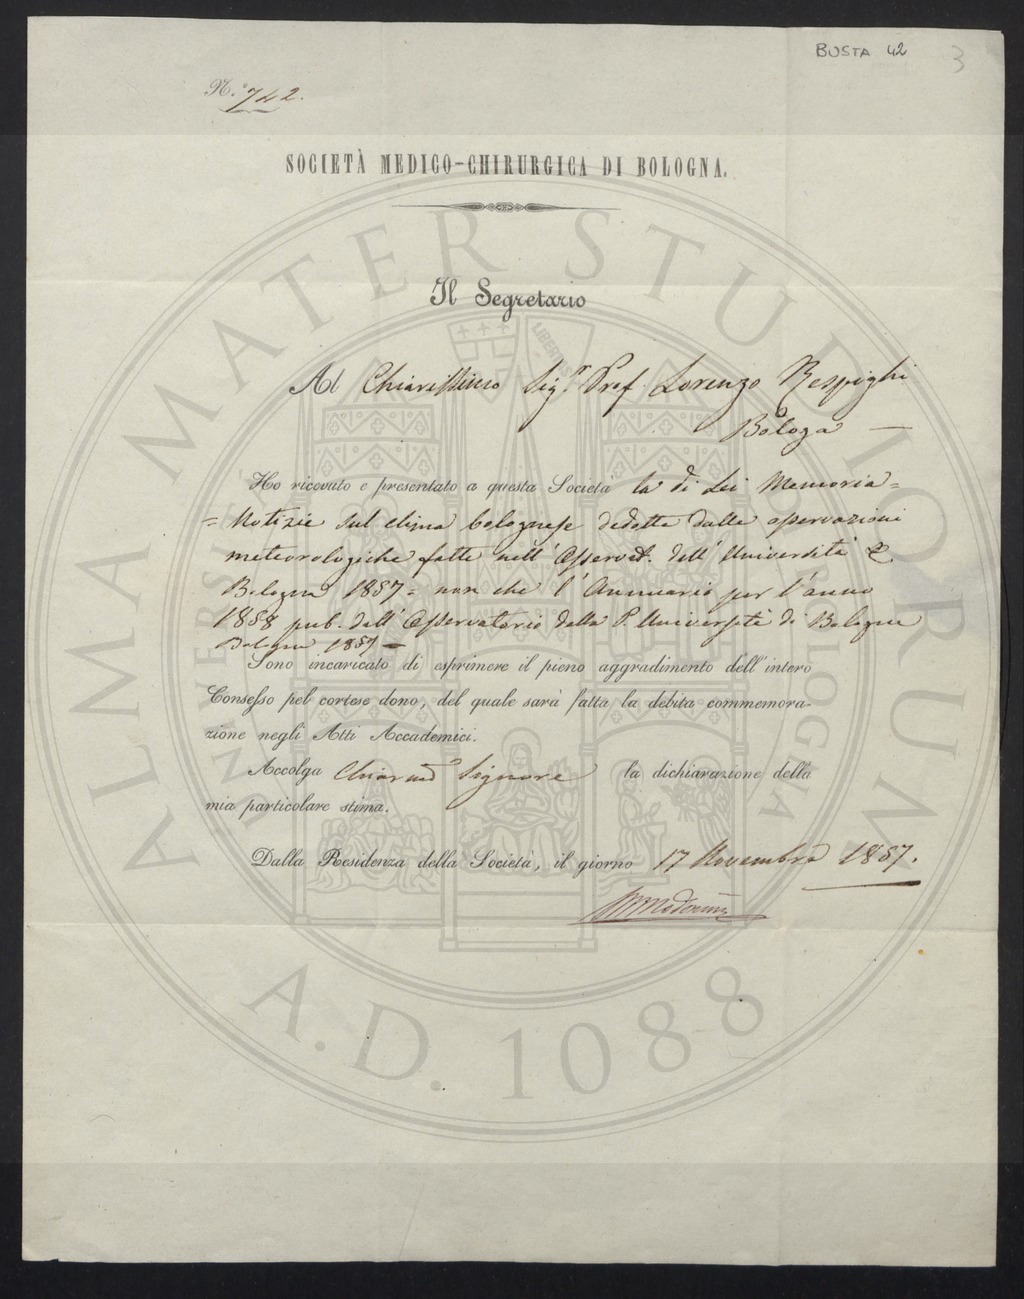 BUSTA 42
3
N.º 742.
SOCIETÀ MEDICO-CHIRURGICA DI BOLOGNA.
Il Segretario
Al Chiarissimo Sig.r Prof. Lorenzo Respighi
Bologa —
Ho ricevuto e presentato a questa Società la di Lei Memoria =
= Notizie sul clima bolognese dedotte dalle osservazioni
meteorologiche fatte nell' Osservat. dell' Università di
Bologna 1857 = non che l' Annuario per l'anno
1858 pub. dall' Osservatorio della P. Università di Bologna
Bologna 1857 =
Sono incaricato di esprimere il pieno aggradimento dell' intero
Consesso pel cortese dono, del quale sarà fatta la debita commemora-
zione negli Atti Accademici.
Accolga Chiarmo Signore la dichiarazione della
mia particolare stima.
Dalla Residenza della Società, il giorno 17 Novembre 1857.
ALMA MATER STUDIORUM
UNIVERSITÀ DI BOLOGNA
LIBERTAS
A.D. 1088